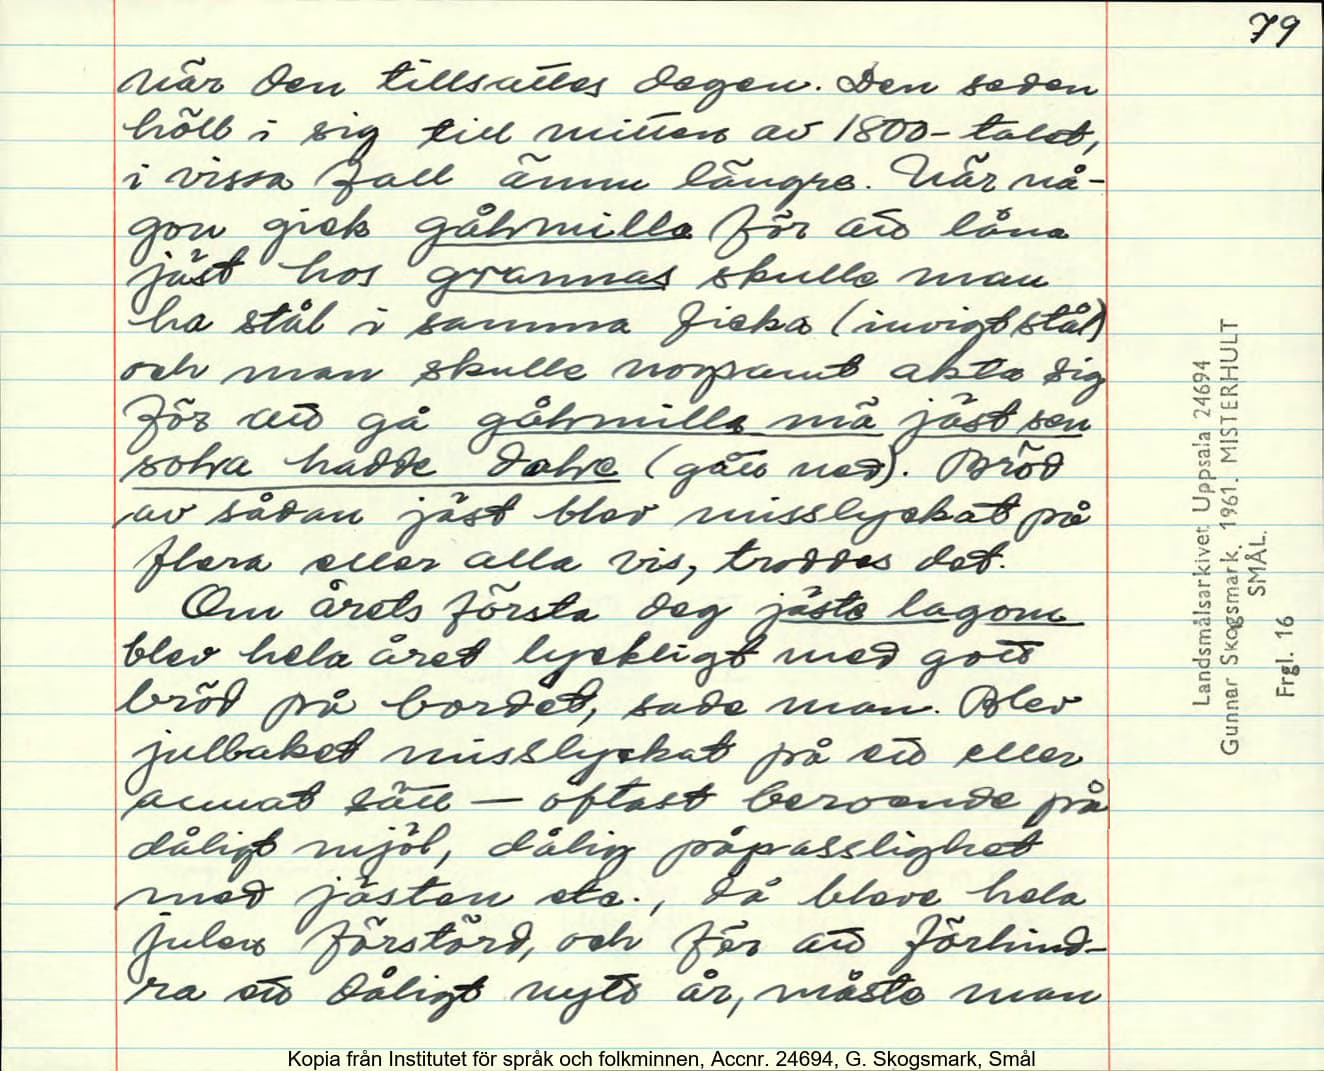 79
när den tillsattes degen. Den seden
höll i sig till mitten av 1800-talet,
i vissa fall ännu längre. När nå-
gon gick gåhrmilla för att låna
jäst hos grannas skulle man
ha stål i samma ficka (invigt stål)
och man skulle nogsamt akta sig
för att gå gåhrmilla mä jäst sen
sola hadde dahle (gått ned). Bröd
av sådan jäst blev misslyckat på
flera eller alla vis, troddes det.
Om årets första deg jäste lagom
blev hela året lyckligt med gott
bröd på bordet, sade man. Blev
julbaket misslyckat på ett eller
annat sätt – oftast beroende på
dåligt mjöl, dålig påpasslighet
med jästen etc., då bleve hela
julen förstörd, och för att förhind-
ra ett dåligt nytt år, måste man
Landsmålsarkivet Uppsala 24694
Gunnar Skogsmark. 1961. MISTERHULT
SMÅL.
Frgl. 16
Kopia från Institutet för språk och folkminnen, Accnr. 24694, G. Skogsmark, Smål